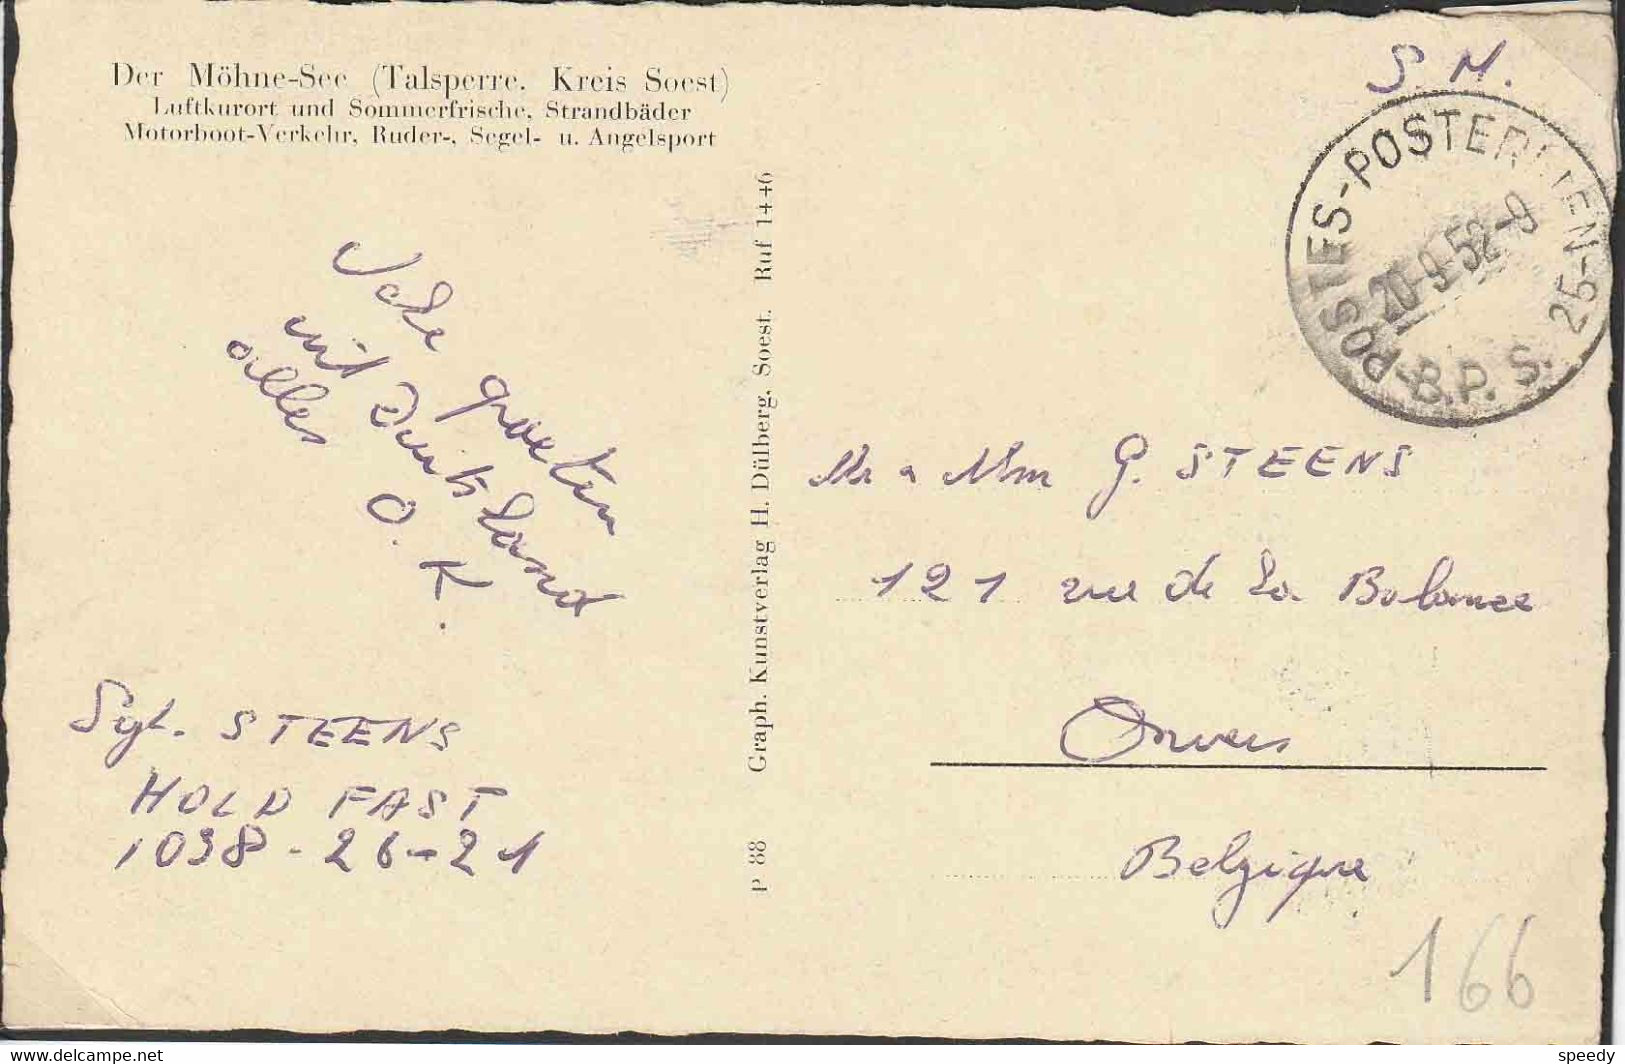 Der Möhne-See (Talsperre, Kreis Soest)
Luftkurort und Sommerfrische, Strandbäder
Motorboot-Verkehr, Ruder-, Segel- u. Angelsport
S. M.
POSTES-POSTERIJEN
20-9-52-9
B.P.S. 26
groeten
uit Duitsland
alles
O.K.
Graph. Kunstverlag H. Dülberg, Soest. Ruf 1446
P 88
Mr & Mme G. STEENS
121 rue de la Balance
Anvers
Belgique
Sgt. STEENS
HOLD FAST
1038-26-21
166
www.delcampe.net
speedy